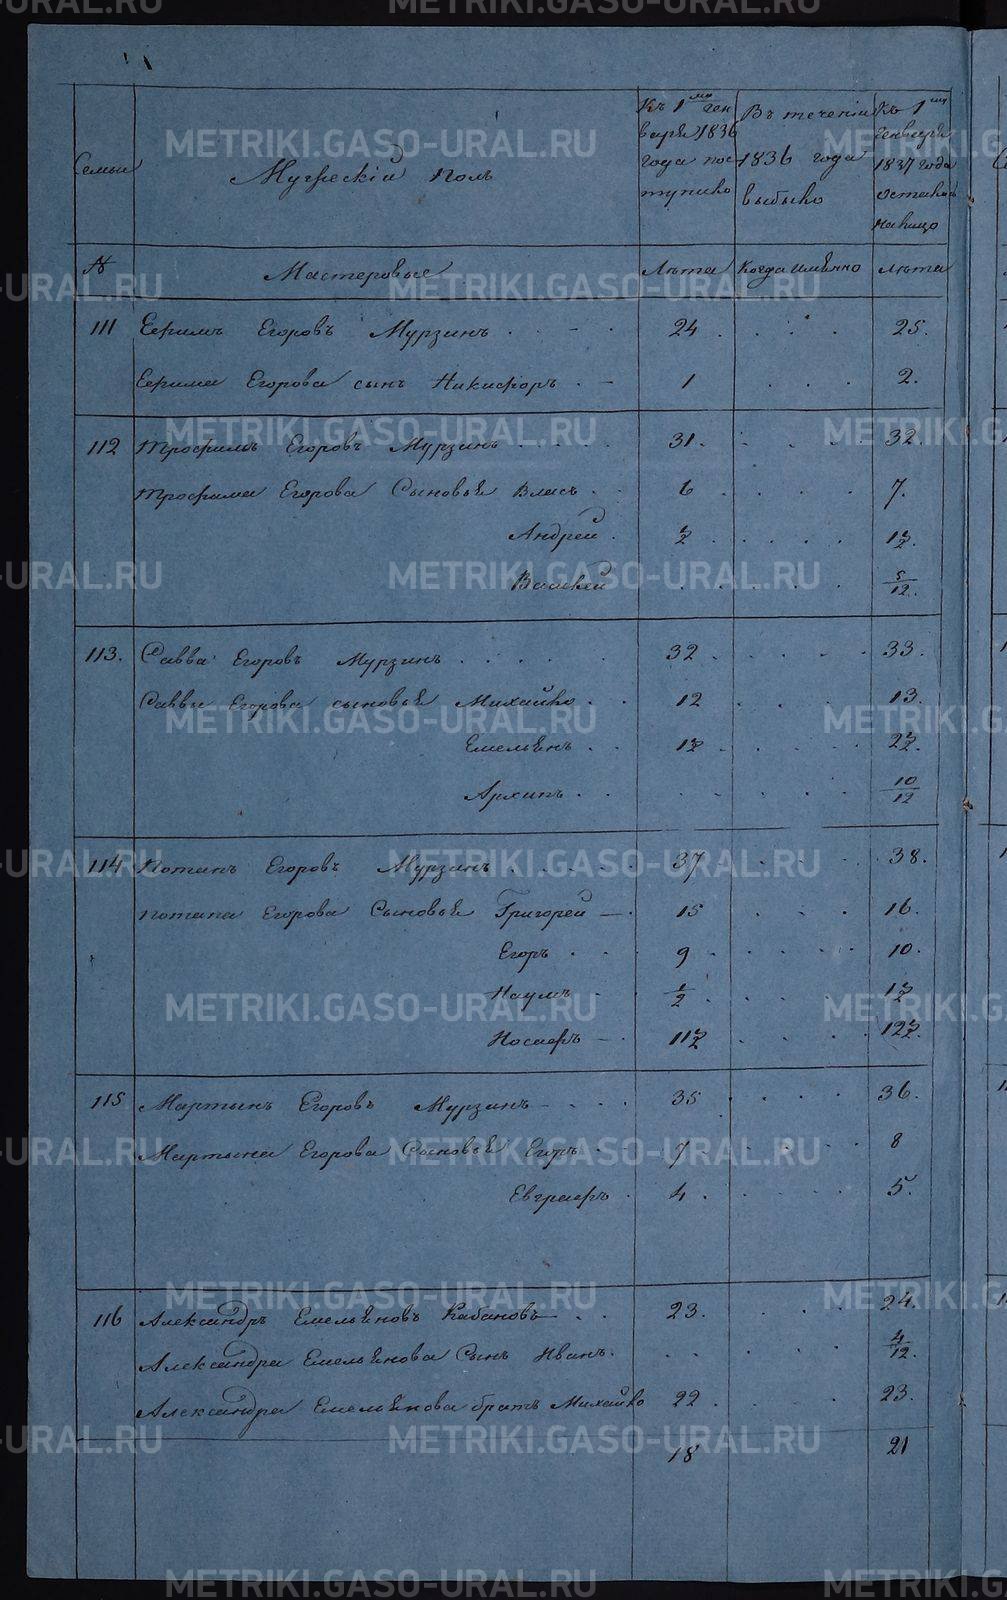 METRIKI.GASO-URAL.RU
Семьи
Мужескiй полъ
Къ 1мя Ген
варя 1836
года пос
тупило
Въ теченiи
1836 года
выбыло
Къ 1мя
Генваря
1837 года
осталось
налицо
№ Мастеровые Лѣта Когда имянно лѣта
111 Ефимъ Егоровъ Мурзинъ 24 25.
Ефима Егорова сынъ Никифоръ 1 2.
112 Трофимъ Егоровъ Мурзинъ 31. 32.
Трофима Егорова Сыновья Власъ 6 7.
Андрей 1/2 1 1/2
Василей 5/12.
113. Савва Егоровъ Мурзинъ 32 33.
Саввы Егорова сыновья Михайло 12 13.
Емельянъ 1 1/2 2 1/2
Архипъ 10/12
114 Потапъ Егоровъ Мурзинъ 37 38.
Потапа Егорова Сыновья Григорей 15 16.
Егоръ 9 10.
Наумъ 1/2 1 1/2
Иосифъ 11 1/2 12 1/2
115 Мартынъ Егоровъ Мурзинъ 35 36.
Мартына Егорова Сыновья Егоръ 7 8
Евграфъ 4 5.
116 Александръ Емельяновъ Кабановъ 23. 24.
Александра Емельянова Сынъ Иванъ 4/12.
Александра Емельянова братъ Михайло 22 23.
18 21